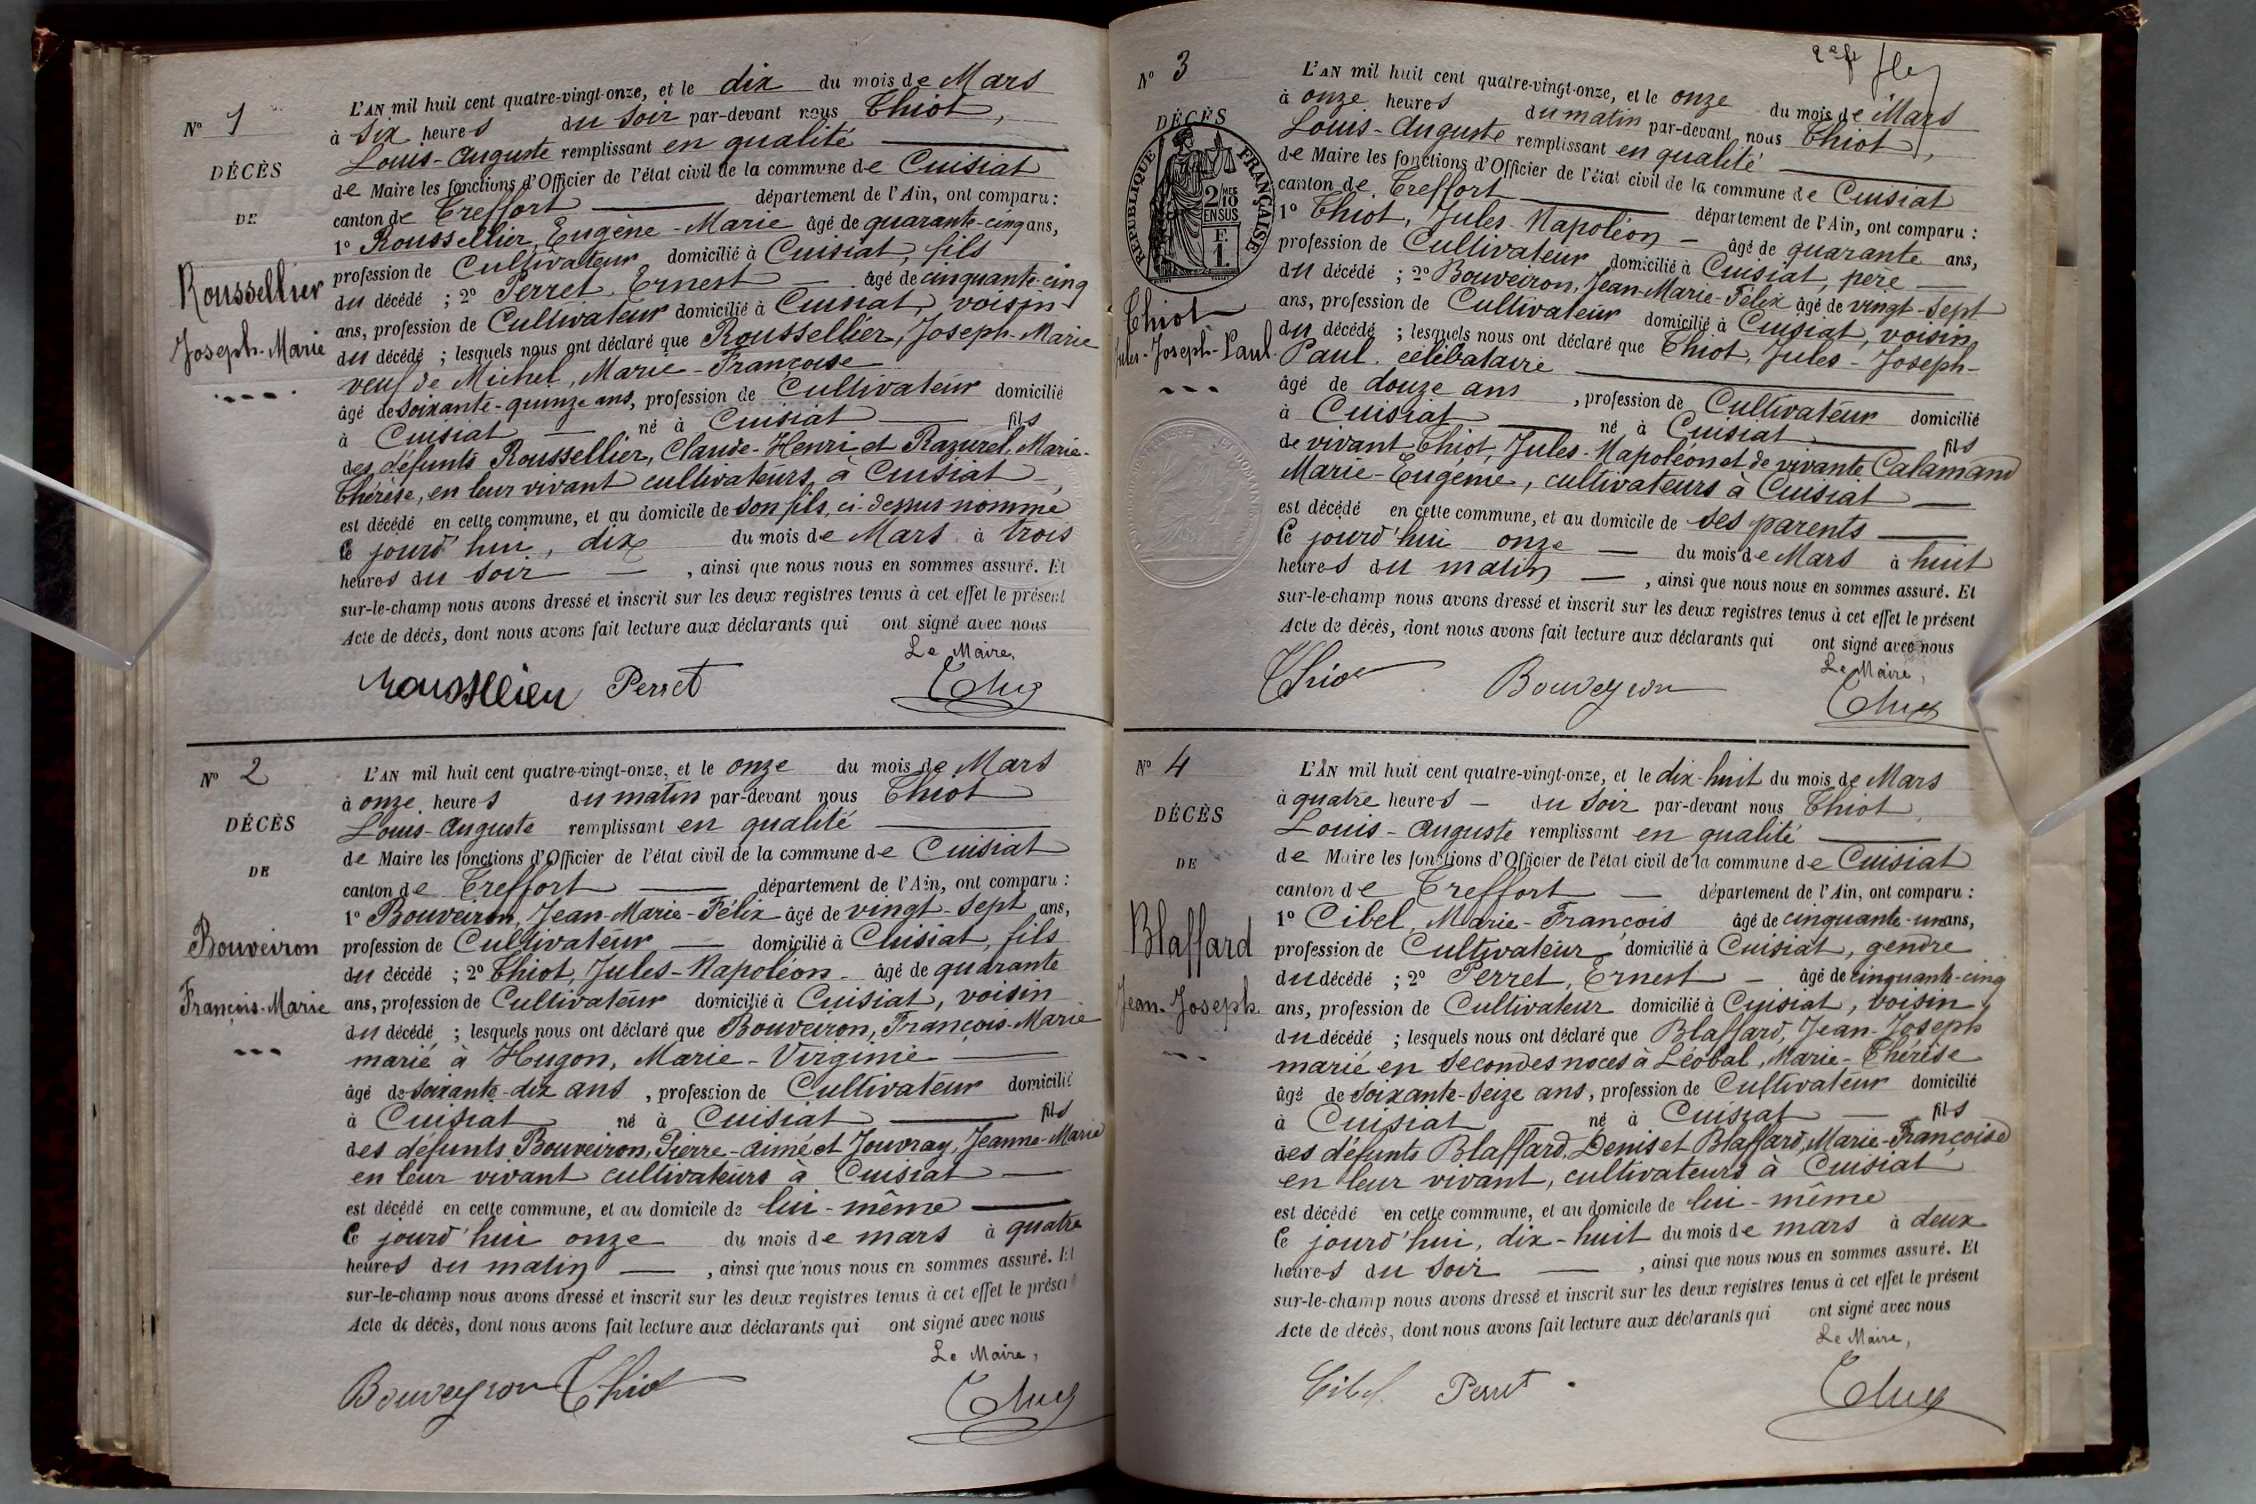 N° 1
DÉCÈS
DE
Roussellier
Joseph-Marie
L'AN mil huit cent quatre-vingt-onze, et le dix du mois de Mars
à six heures du soir par-devant nous Thiot,
Louis-Auguste remplissant en qualité
de Maire les fonctions d'Officier de l'état civil de la commune de Cuisiat
canton de Treffort département de l'Ain, ont comparu :
1° Roussellier, Eugène-Marie âgé de quarante-cinq ans,
profession de Cultivateur domicilié à Cuisiat, fils
du décédé ; 2° Perret, Ernest âgé de cinquante-cinq
ans, profession de Cultivateur domicilié à Cuisiat, voisin
du décédé ; lesquels nous ont déclaré que Roussellier, Joseph-Marie
veuf de Michel, Marie-Françoise
âgé de soixante-quinze ans, profession de Cultivateur domicilié
à Cuisiat né à Cuisiat fils
des défunts Roussellier, Claude-Henri et Razurel, Marie-
Thérèse, en leur vivant cultivateurs à Cuisiat
est décédé en cette commune, et au domicile de son fils, ci-dessus nommé
Ce jourd'hui, dix du mois de Mars à trois
heures du soir , ainsi que nous nous en sommes assuré. Et
sur-le-champ nous avons dressé et inscrit sur les deux registres tenus à cet effet le présent
Acte de décès, dont nous avons fait lecture aux déclarants qui ont signé avec nous
Le Maire,
Roussellier Perret
N° 2
DÉCÈS
DE
Bouveiron
François-Marie
L'AN mil huit cent quatre-vingt-onze, et le onze du mois de Mars
à onze heures du matin par-devant nous Thiot
Louis-Auguste remplissant en qualité
de Maire les fonctions d'Officier de l'état civil de la commune de Cuisiat
canton de Treffort département de l'Ain, ont comparu :
1° Bouveiron, Jean-Marie-Félix âgé de vingt-sept ans,
profession de Cultivateur domicilié à Cuisiat, fils
du décédé ; 2° Thiot, Jules-Napoléon âgé de quarante
ans, profession de Cultivateur domicilié à Cuisiat, voisin
du décédé ; lesquels nous ont déclaré que Bouveiron, François-Marie
marié à Hugon, Marie-Virginie
âgé de soixante-dix ans, profession de Cultivateur domicilié
à Cuisiat né à Cuisiat fils
des défunts Bouveiron, Pierre-Aimé et Jouvray, Jeanne-Marie
en leur vivant cultivateurs à Cuisiat
est décédé en cette commune, et au domicile de lui-même
Ce jourd'hui onze du mois de mars à quatre
heures du matin , ainsi que nous nous en sommes assuré. Et
sur-le-champ nous avons dressé et inscrit sur les deux registres tenus à cet effet le présent
Acte de décès, dont nous avons fait lecture aux déclarants qui ont signé avec nous
Le Maire,
Bouveyron Thiot
N° 3
DÉCÈS
RÉPUBLIQUE FRANÇAISE
2/10 EN SUS
F. 1.
Thiot
Jules-Joseph-Paul
L'AN mil huit cent quatre-vingt-onze, et le onze du mois de Mars
à onze heures du matin par-devant nous Thiot,
Louis-Auguste remplissant en qualité
de Maire les fonctions d'Officier de l'état civil de la commune de Cuisiat
canton de Treffort département de l'Ain, ont comparu :
1° Thiot, Jules-Napoléon âgé de quarante ans,
profession de Cultivateur domicilié à Cuisiat, père
du décédé ; 2° Bouveiron, Jean-Marie-Félix âgé de vingt-sept
ans, profession de Cultivateur domicilié à Cuisiat, voisin
du décédé ; lesquels nous ont déclaré que Thiot, Jules-Joseph-
Paul célibataire
âgé de douze ans, profession de Cultivateur domicilié
à Cuisiat né à Cuisiat fils
de vivant Thiot, Jules-Napoléon et de vivante Calamand
Marie-Eugénie, cultivateurs à Cuisiat
est décédé en cette commune, et au domicile de ses parents
Ce jourd'hui onze du mois de Mars à huit
heures du matin , ainsi que nous nous en sommes assuré. Et
sur-le-champ nous avons dressé et inscrit sur les deux registres tenus à cet effet le présent
Acte de décès, dont nous avons fait lecture aux déclarants qui ont signé avec nous
Le Maire,
Thiot Bouveyron
N° 4
DÉCÈS
DE
Blaffard
Jean-Joseph
L'AN mil huit cent quatre-vingt-onze, et le dix-huit du mois de Mars
à quatre heures du soir par-devant nous Thiot,
Louis-Auguste remplissant en qualité
de Maire les fonctions d'Officier de l'état civil de la commune de Cuisiat
canton de Treffort département de l'Ain, ont comparu :
1° Cibel, Marie-François âgé de cinquante-un ans,
profession de Cultivateur domicilié à Cuisiat, gendre
du décédé ; 2° Perret, Ernest âgé de cinquante-cinq
ans, profession de Cultivateur domicilié à Cuisiat, voisin
du décédé ; lesquels nous ont déclaré que Blaffard, Jean-Joseph
marié en secondes noces à Léobal, Marie-Thérèse
âgé de soixante-seize ans, profession de Cultivateur domicilié
à Cuisiat né à Cuisiat fils
des défunts Blaffard, Denis et Blaffard, Marie-Françoise
en leur vivant, cultivateurs à Cuisiat
est décédé en cette commune, et au domicile de lui-même
Ce jourd'hui, dix-huit du mois de mars à deux
heures du soir , ainsi que nous nous en sommes assuré. Et
sur-le-champ nous avons dressé et inscrit sur les deux registres tenus à cet effet le présent
Acte de décès, dont nous avons fait lecture aux déclarants qui ont signé avec nous
Le Maire,
Cibel Perret